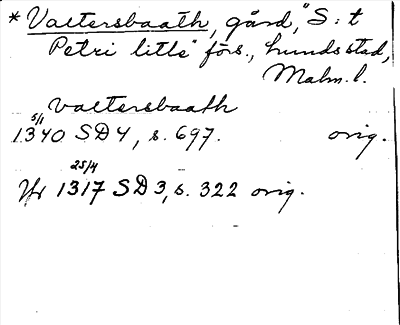 * Valtersbaath, gård, "S:t
Petri lille" förs., Lunds stad,
Malm. l.
valtersbaath
5/1
1340 SD 4, s. 697. orig.
25/4
1317 SD 3, s. 322 orig.